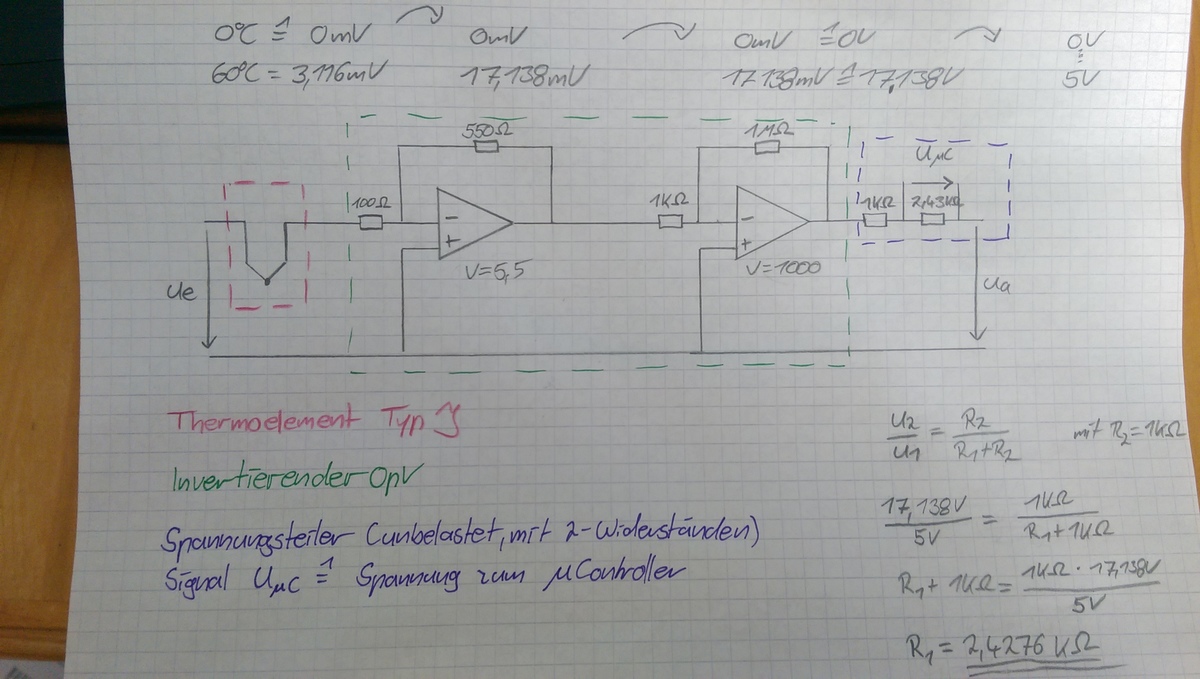 0°C ≙ 0mV 0mV 0mV ≙ 0V 0V
60°C = 3,116mV 17,138mV 17138mV ≙ 17,138V 5V
550Ω 1MΩ
UµC
100Ω 1KΩ 1KΩ 2,43KΩ
− −
+ +
V=5,5 V=1000
Ue Ua
Thermoelement Typ J
Invertierender OpV
Spannungsteiler (unbelastet, mit 2-Widerständen)
Signal UµC ≙ Spannung zum µController
U2/U1 = R2/(R1+R2) mit R2=1KΩ
17,138V/5V = 1KΩ/(R1+1KΩ)
R1+1KΩ = (1KΩ · 17,138V)/5V
R1 = 2,4276 KΩ